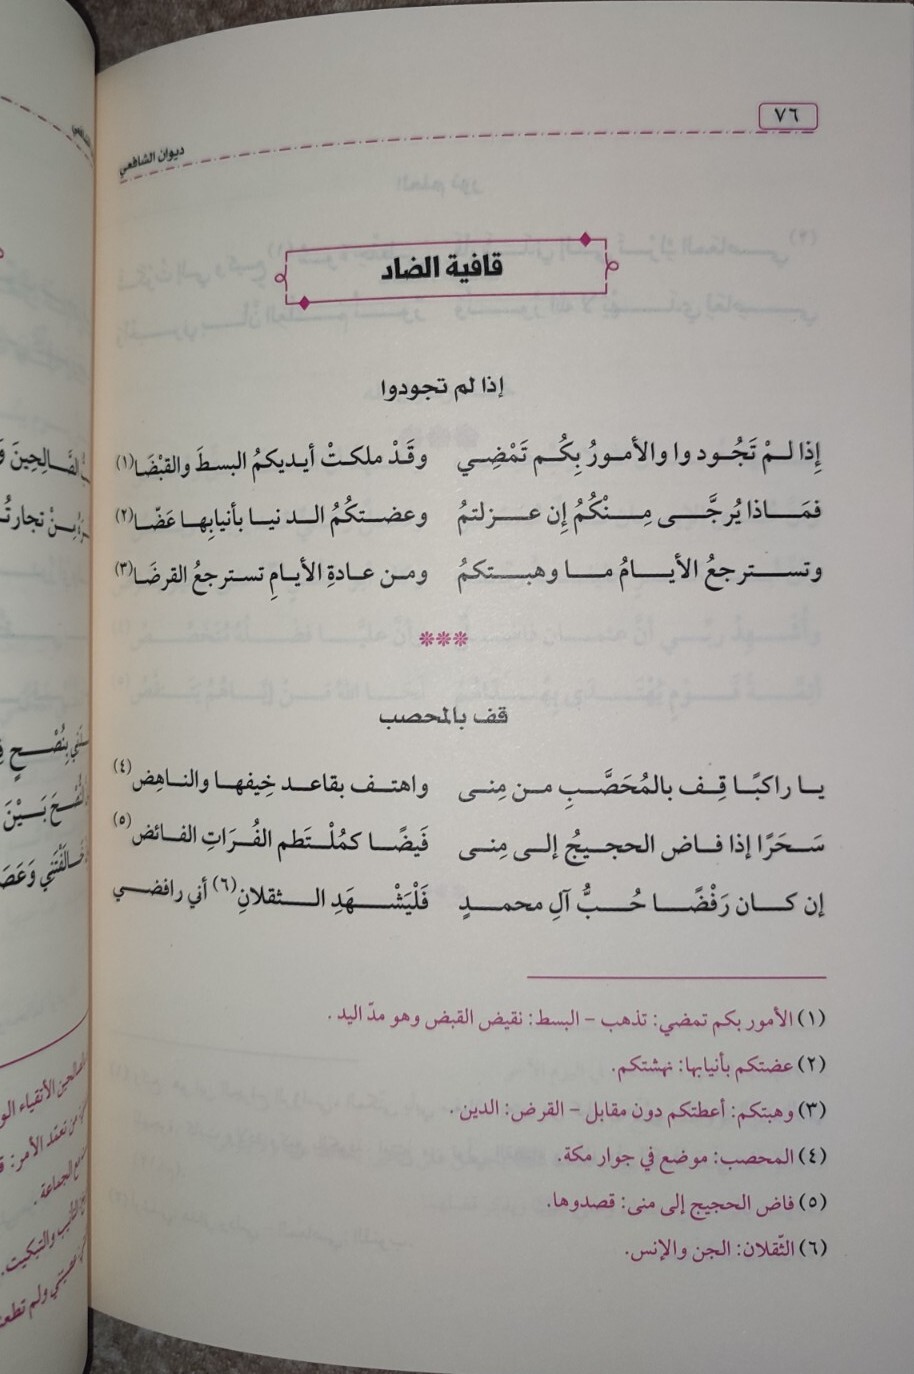 ٧٦
ديوان الشافعي
قافية الضاد
إذا لم تجودوا
إِذا لمْ تَجُودوا والأمورُ بِكُم تَمْضِي وقَدْ ملكتْ أيديكمُ البسطَ والقبْضَا(١)
فمَاذا يُرجَّى مِنْكُمُ إن عزلتمُ وعضتكُمُ الدنيا بأنيابِها عَضّا(٢)
وتسترجعُ الأيامُ ما وهبتكمُ ومن عادةِ الأيامِ تسترجعُ القرضَا(٣)
***
قف بالمحصب
يا راكبًا قِف بالمُحَصَّبِ من مِنى واهتف بقاعد خِيفها والناهِض(٤)
سَحَرًا إذا فاض الحجيجُ إلى مِنى فَيضًا كمُلْتَطم الفُرَاتِ الفائض(٥)
إن كان رَفْضًا حُبُّ آلِ محمدٍ فَلْيَشْهَدِ الثقلانِ(٦) أني رافضي
(١) الأمور بكم تمضي: تذهب – البسط: نقيض القبض وهو مدّ اليد.
(٢) عضتكم بأنيابها: نهشتكم.
(٣) وهبتكم: أعطتكم دون مقابل – القرض: الدين.
(٤) المحصب: موضع في جوار مكة.
(٥) فاض الحجيج إلى منى: قصدوها.
(٦) الثّقلان: الجن والإنس.